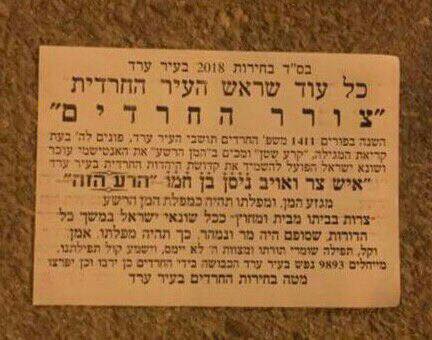 בס"ד בחירות 2018 בעיר ערד
כל עוד שראש העיר החרדית
"צורר החרדים"
השנה בפורים 1411 משפ' החרדים תושבי העיר ערד, פונים לה' בעת
קריאת המגילה, "קרע שטן" ומכים ב"המן הרשע" את האנטישמי עוכר
ושונא ישראל הפועל להשמיד את קדושת היהדות החרדית בעיר ערד
"איש צר ואויב ניסן בן חמו "הרע הזה"
מגזע המן, ומפלתו תהיה כמפלת המן הרשע
צרות בביתו מבית ומחוץ ככל שונאי ישראל במשך כל
הדורות, שסופם היה מר ונמהר, כך תהיה מפלתו. אמן.
וקל, תפילה שומרי תורתו ומצוות ה' לא יימס, וישמע קול תפילתנו,
מייחלים 9893 נפש בעיר ערד הכבושה בידי החרדים כן ירבו וכן יפרצו
מטה בחירות החרדים בעיר ערד